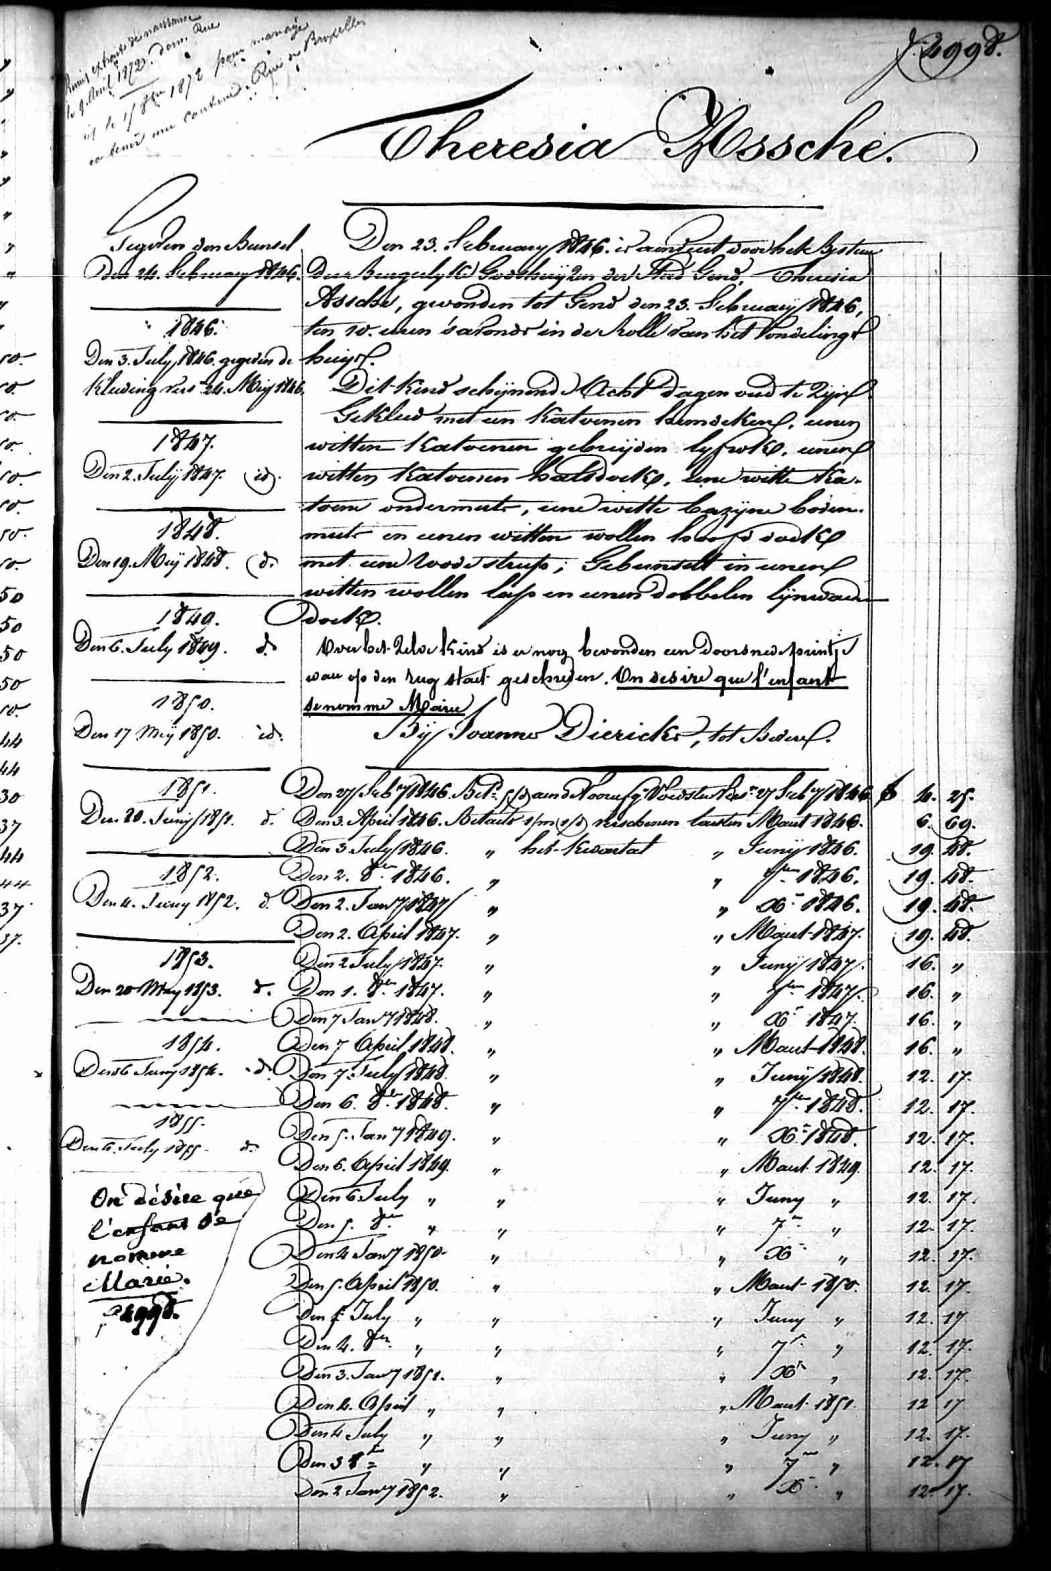 le 9 Avril 1872. dom. Rue
id le 1/ 8bre 1872 pour mariage
4998.
Theresia Assche.
Gegeven den Bunsel
Den 24. February 1846.
1846.
Den 3. July 1846. gegeven de
kleeding vers. 24. Meij 1846.
1847.
Den 2. Julij 1847. id.
1848.
Den 19. Meij 1848. d.
1849.
Den 6. July 1849. d.
1850.
Den 17 Meij 1850. id.
1851.
Den 20. Junij 1851. d.
1852.
Den 4. Juny 1852. d.
1853.
Den 20 May 1853. d.
1854.
Den 16 Juny 1854. d.
1855.
Den 6. July 1855. d.
On désire que
l'enfant se
nomme
Marie.
4998.
Den 23. February 1846. is aenveert door het Bestuer
der Burgerlyke Godshuijzen der Stad Gend, Theresia
Assche, gevonden tot Gend den 23. February 1846,
ten 10. uren 's avonds in de Rolle van het Vondelings
huijs.
Dit kind schijnend Acht dagen oud te zijn.
Gekleed met een katoenen hemdeken, eenen
witten katoenen gebreijden lyfrok, eenen
witten katoenen halsdoek, eene witte ka-
toene ondermuts, eene witte bazijne boven-
muts en eenen witten wollen hoofd doek
met eene roode strup; Gebunselt in eenen
witten wollen lap en eenen dobbelen lynwaden
doek.
Over het zelve kind is er nog bevonden een doorsnede printje
waer op den rug staet geschreven. On desire que l'enfant
se nomme Marie
Bij Joannes Dierickx, tot
Den 27 Feby 1846. Bet. aen de Voedster vers. 27 Feby 1846. f 4. 25.
Den 3. April 1846. Betaelt verschenen lasten Maert 1846. 6. 69.
Den 3 July 1846. " het kwartal " Junij 1846. 19. 48.
Den 2. 8er 1846. " " 7ber 1846. 19. 48.
Den 2. Jany 1847 " " Xr 1846. 19. 48.
Den 2. April 1847. " " Maert 1847. 19. 48.
Den 2 July 1847. " " Junij 1847. 16. "
Den 1. 8er 1847. " " 7ber 1847. 16. "
Den 7 Jany 1848. " " Xr 1847. 16. "
Den 7 April 1848. " " Maert 1848. 16. "
Den 7. July 1848. " " Junij 1848. 12. 17.
Den 6. 8er 1848. " " 7ber 1848. 12. 17.
Den 5. Jany 1849. " " Xr 1848. 12. 17.
Den 6. April 1849. " " Maert 1849. 12. 17.
Den 6 July " " " Juny " 12. 17.
Den 5. 8er " " " 7er " 12. 17.
Den 4 Jany 1850. " " Xr " 12. 17.
Den 5. April 1850. " " Maert 1850. 12. 17.
Den 5 July " " " Juny " 12. 17
Den 4. 8er " " " 7r " 12. 17.
Den 3. Jany 1851. " " Xr " 12. 17.
Den 4. April " " " Maert 1851. 12. 17
Den 4 July " " " Juny " 12. 17.
Den 3 8r " " " 7r " 12. 17
Den 2 Jany 1852. " " Xr " 12. 17.